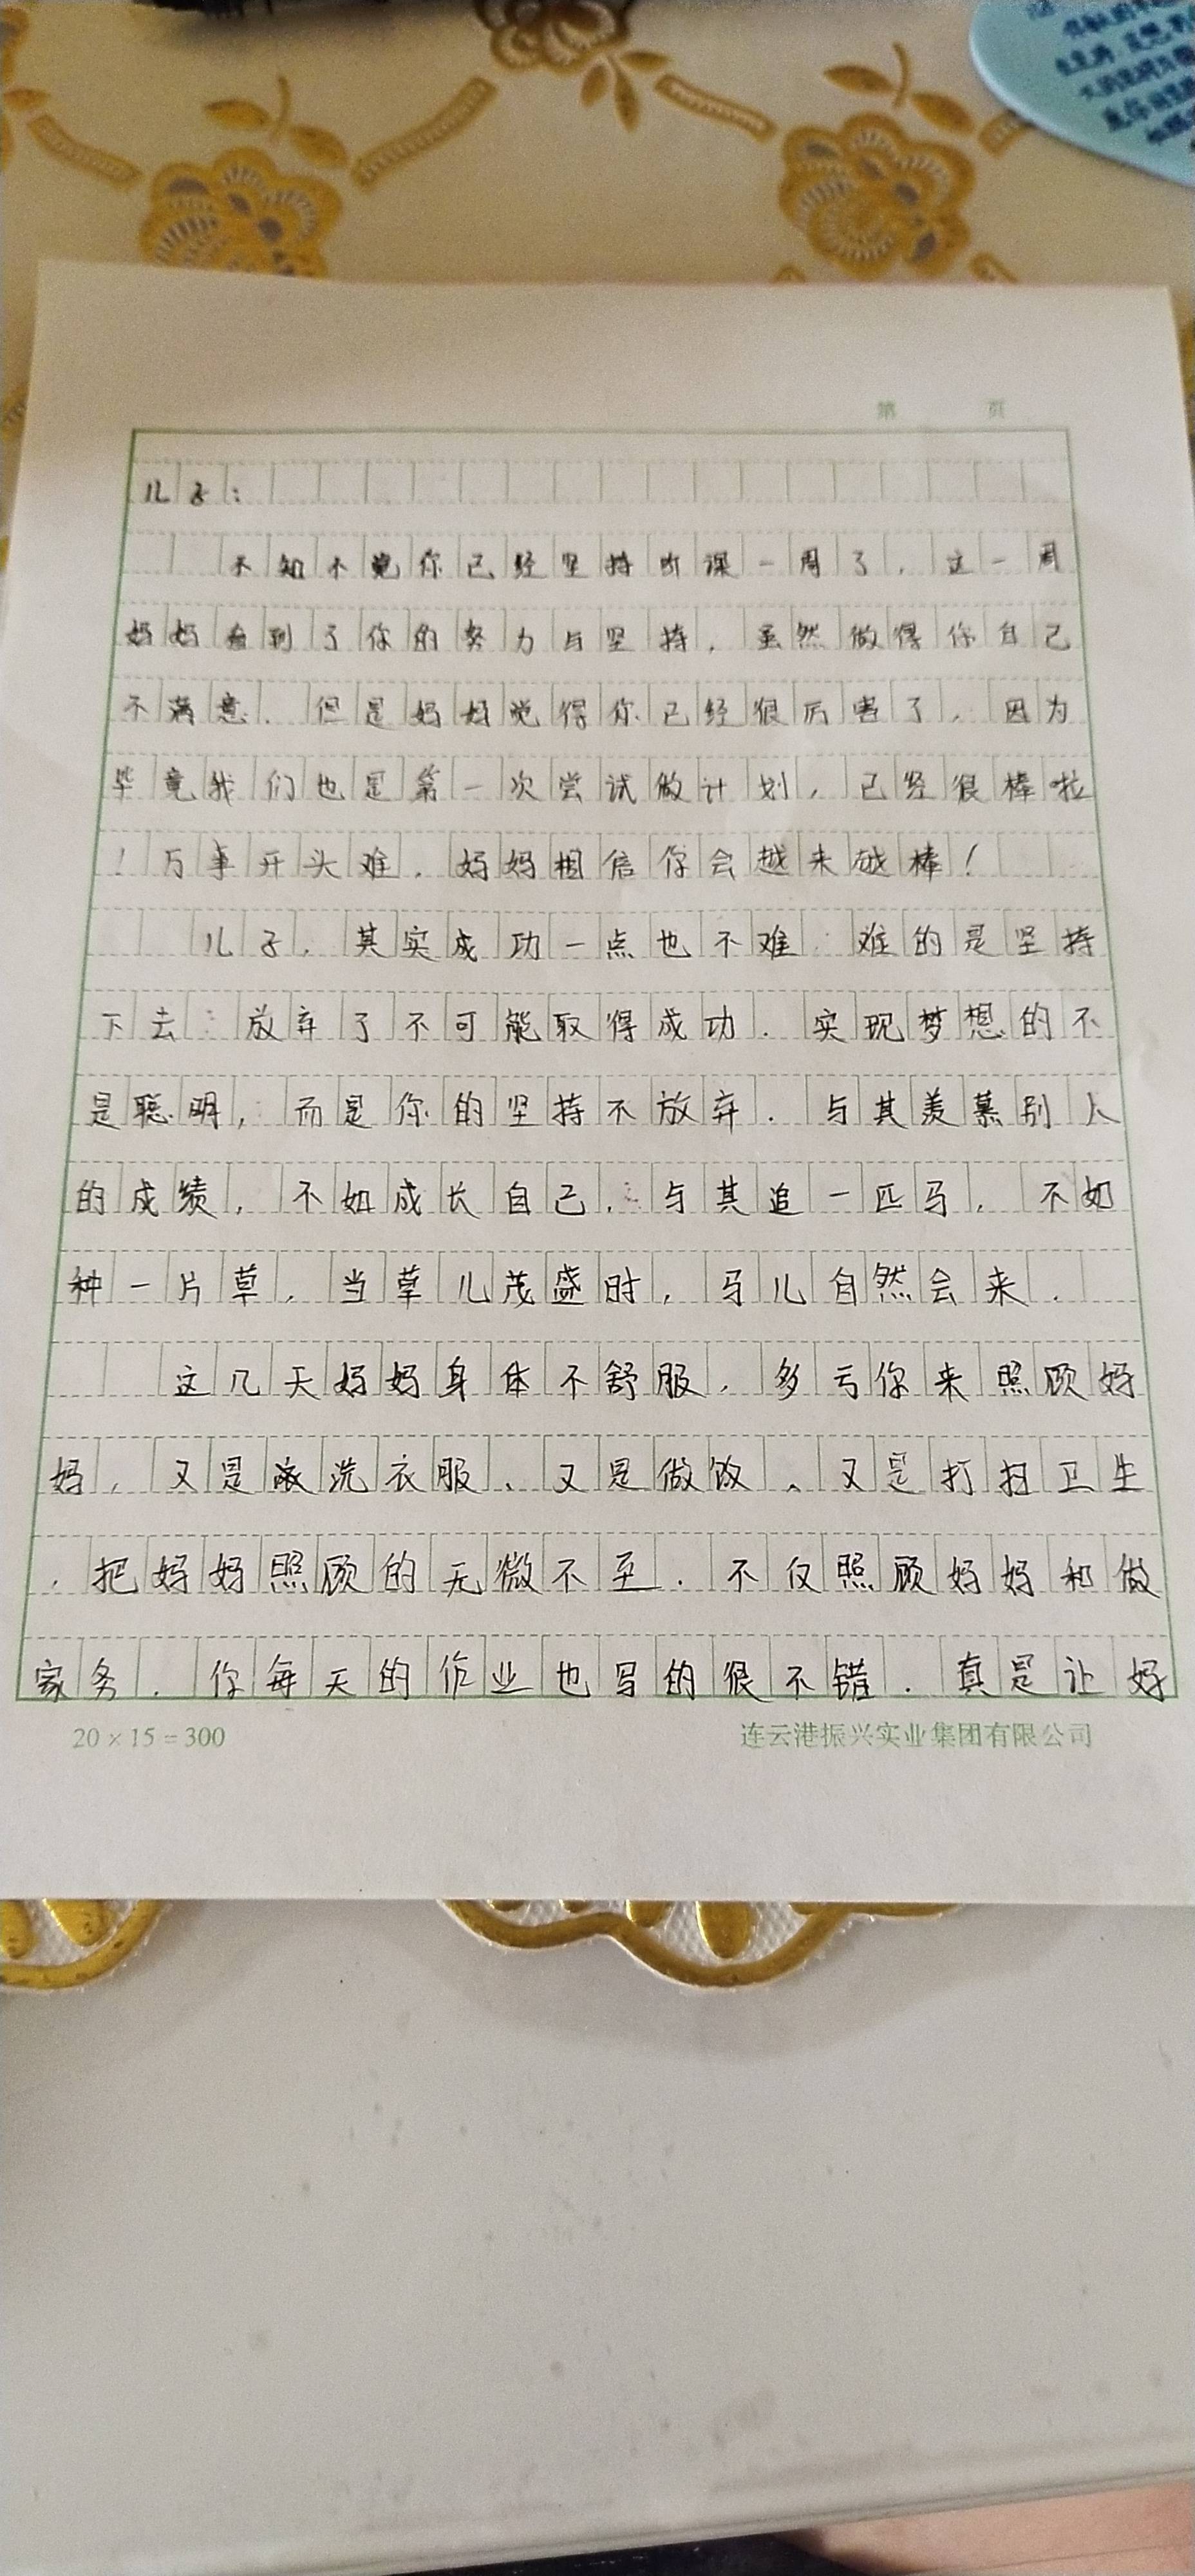 第 页
儿子：
不知不觉你已经坚持听课一周了，这一周
妈妈看到了你的努力与坚持，虽然做得你自己
不满意，但是妈妈觉得你已经很厉害了，因为
毕竟我们也是第一次尝试做计划，已经很棒啦
！万事开头难，妈妈相信你会越来越棒！
儿子，其实成功一点也不难，难的是坚持
下去，放弃了不可能取得成功．实现梦想的不
是聪明，而是你的坚持不放弃．与其羡慕别人
的成绩，不如成长自己．与其追一匹马，不如
种一片草，当草儿茂盛时，马儿自然会来．
这几天妈妈身体不舒服，多亏你来照顾妈
妈，又是洗衣服、又是做饭、又是打扫卫生
，把妈妈照顾的无微不至．不仅照顾妈妈和做
家务，你每天的作业也写的很不错．真是让妈
20×15=300 连云港振兴实业集团有限公司